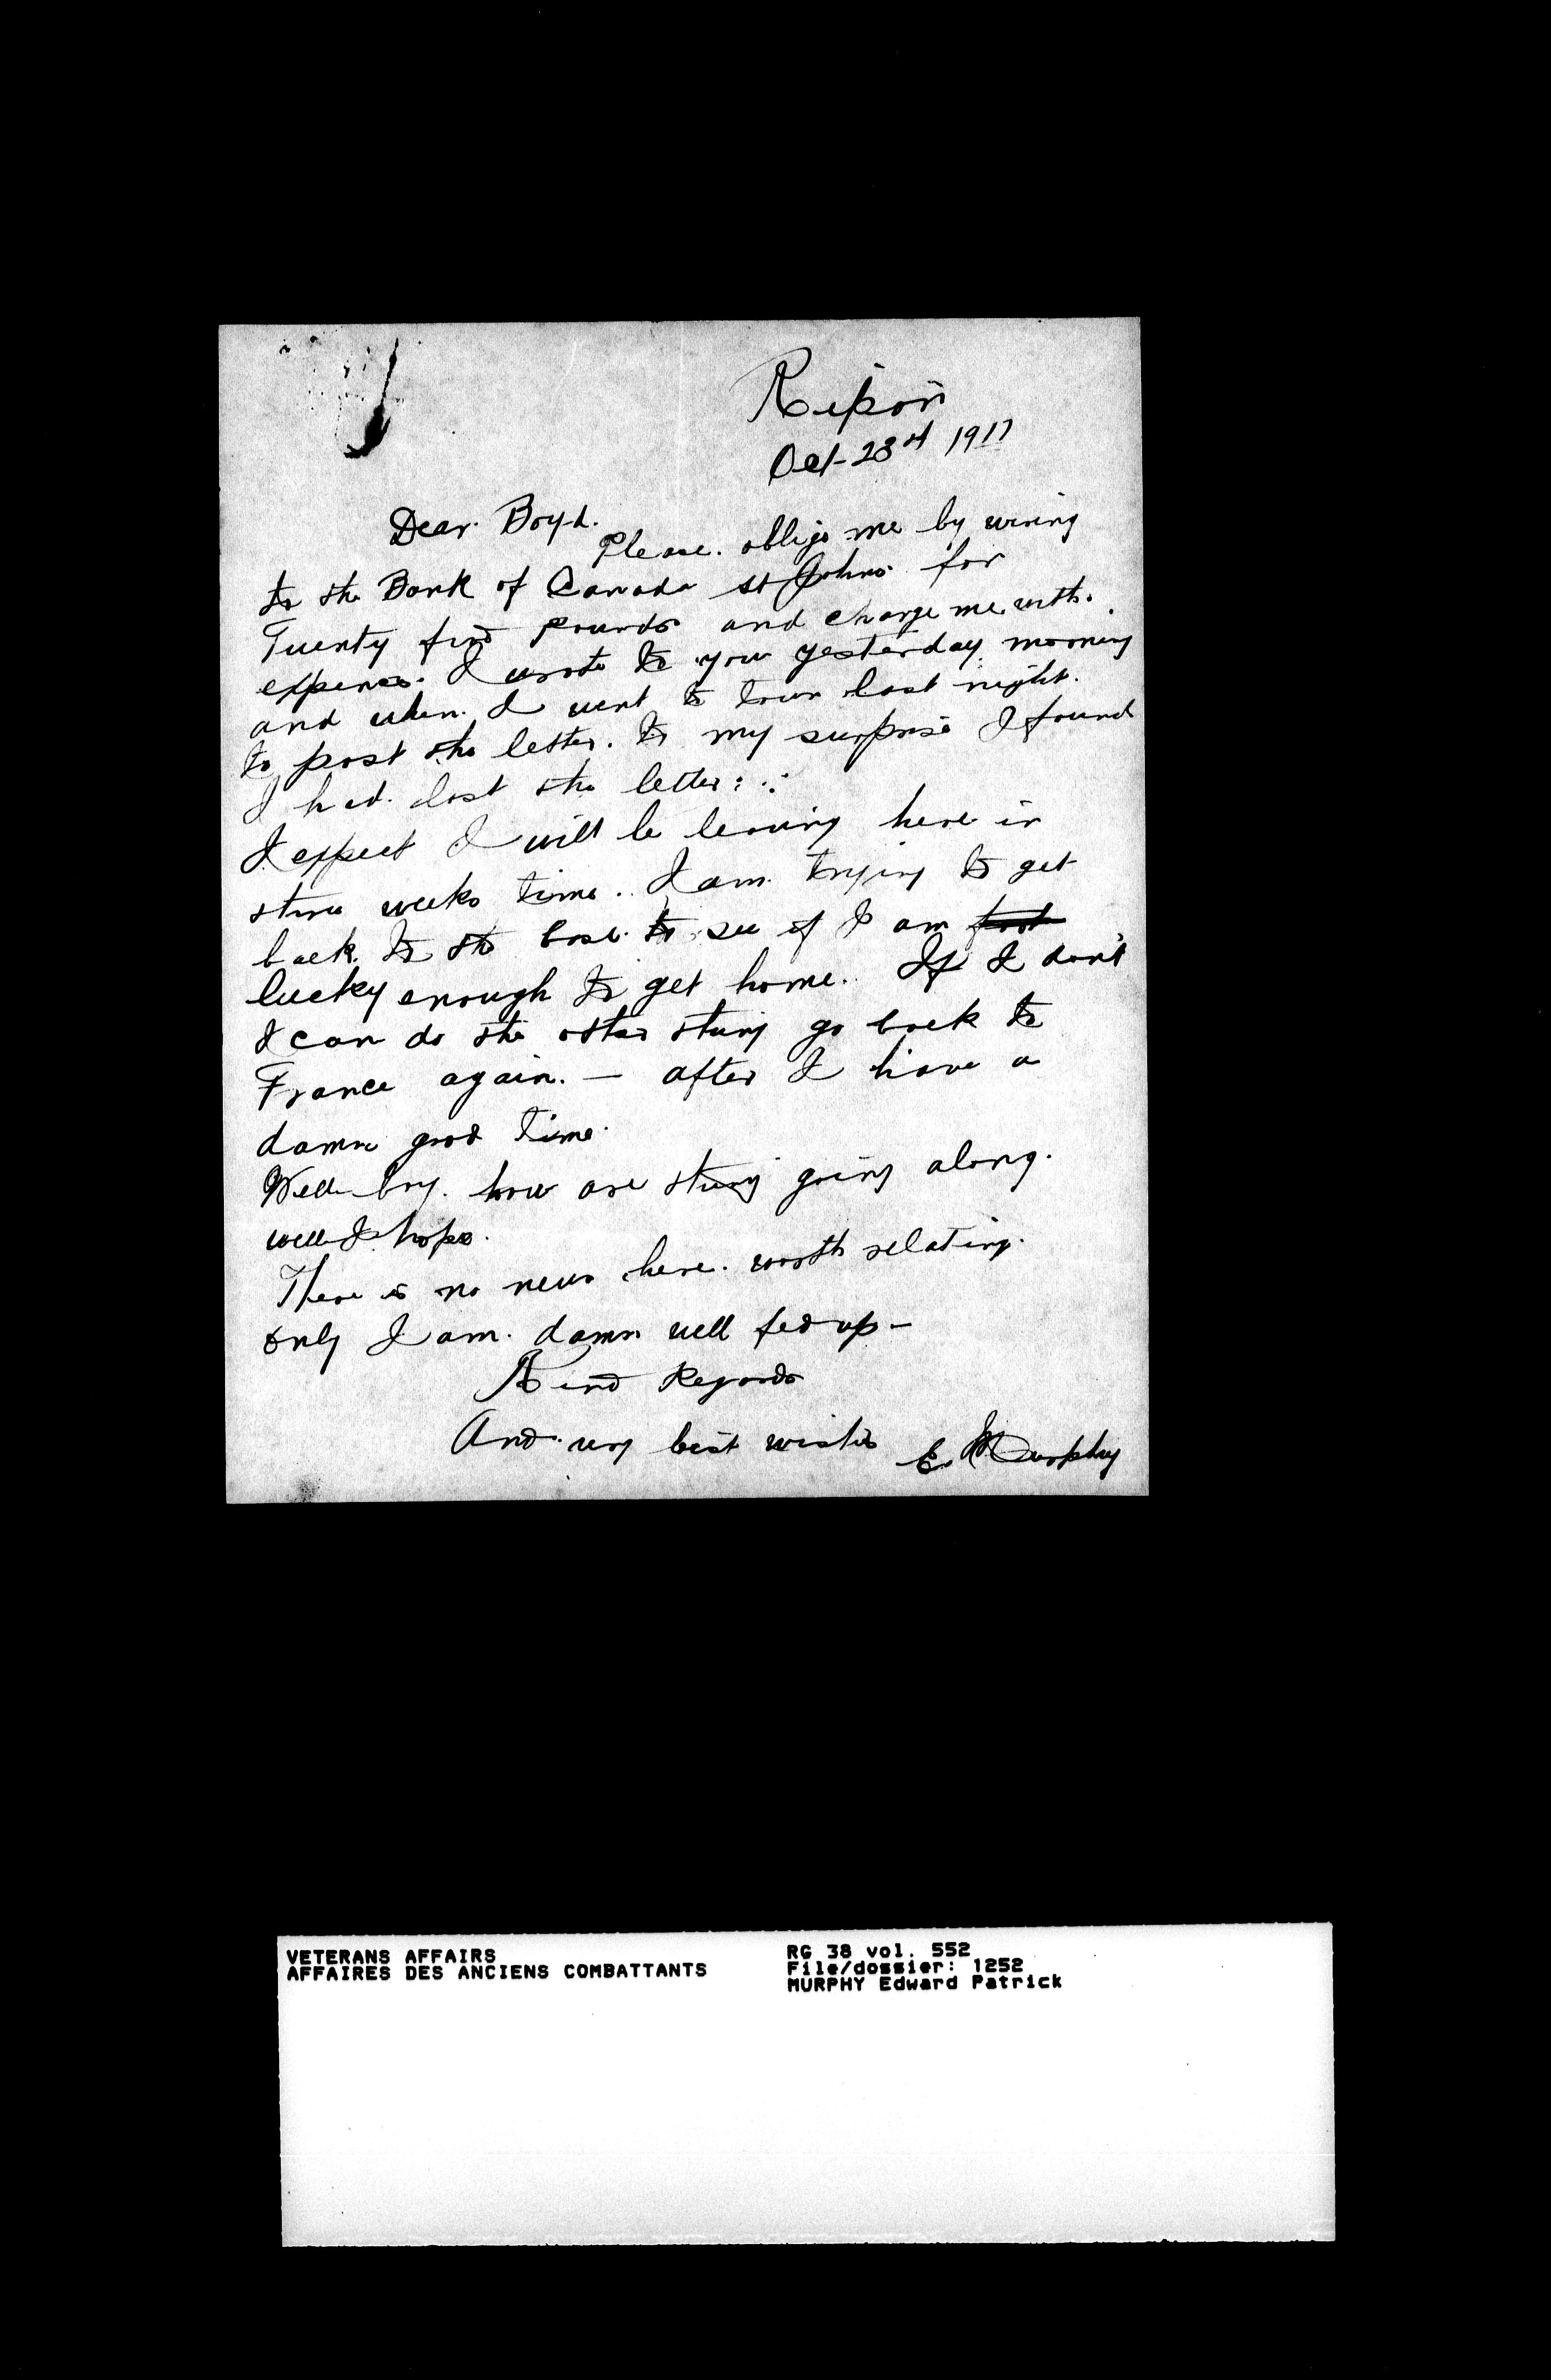 Ripon
Oct-23rd 1917
Dear. Boyd.
Please. oblige me by wiring
to the Bank of Canada St Johns for
Twenty five Pounds and charge me with.
expences. I wrote to you yesterday morning
and when. I went to town last night.
to post the letter. to my surprise I found
I had. lost the letter: :
I expect I will be leaving here in
three weeks time. I am trying to get
back. to the base. to see if I am
lucky enough to get home. If I don't
I can do the other thing go back to
France again. — after I have a
damn good time.
Well boy. how are things going along.
well I hope.
There is no news here. worth relating.
only I am. damn well fed up —
Kind Regards
And. very best wishes E. Murphy
VETERANS AFFAIRS RG 38 vol. 552
AFFAIRES DES ANCIENS COMBATTANTS File/dossier: 1252
MURPHY Edward Patrick